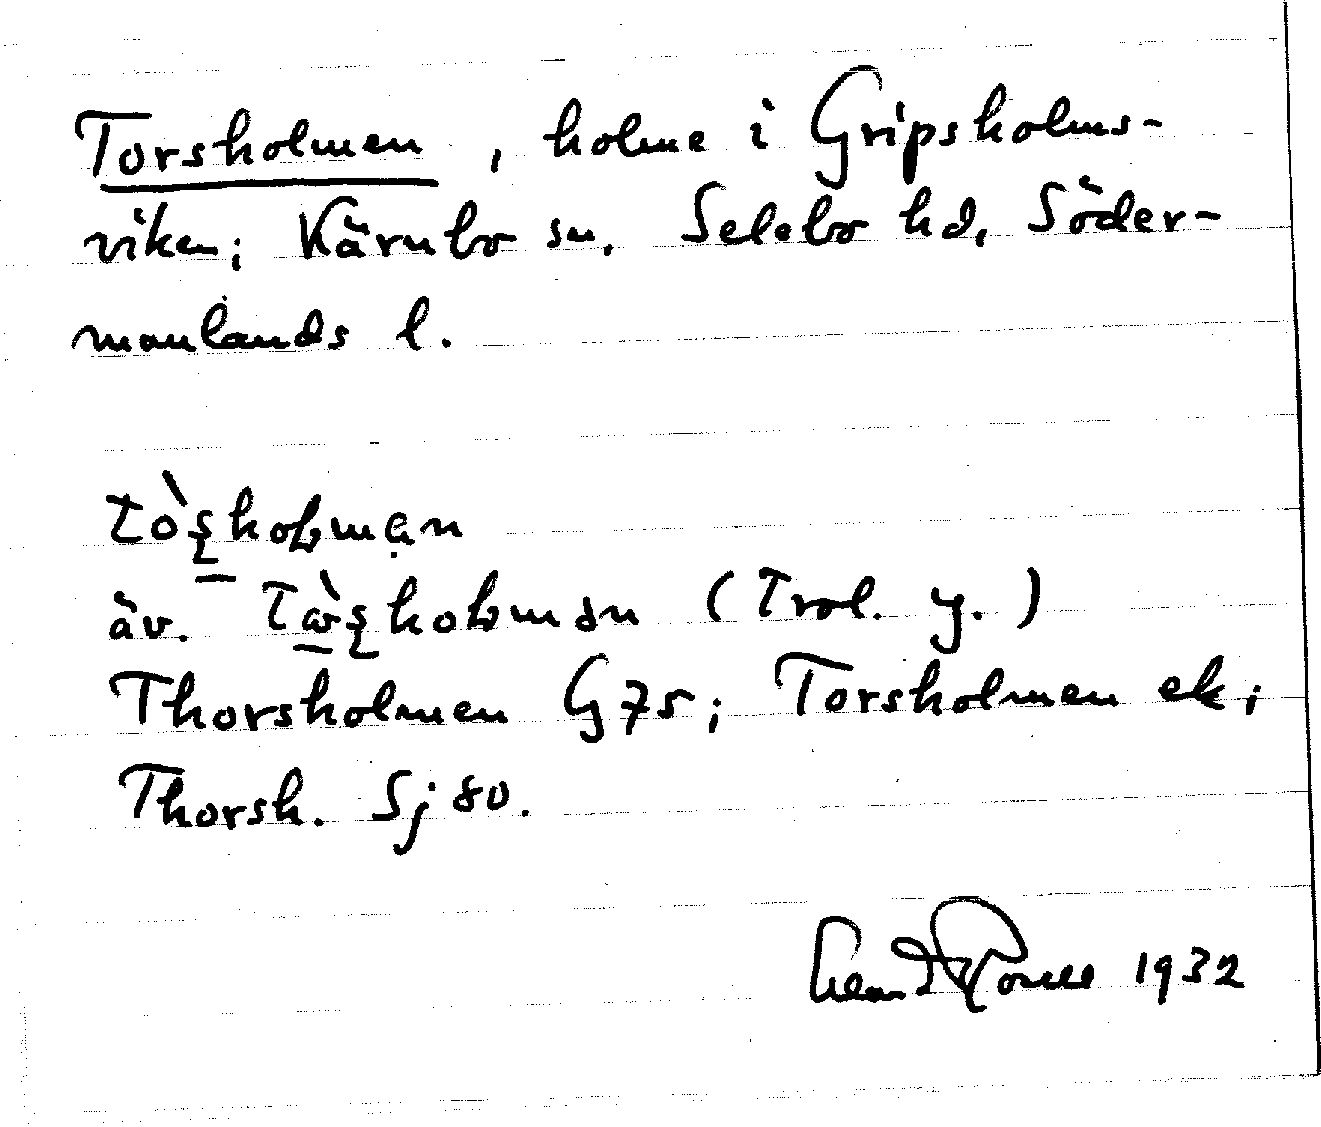 Torsholmen, holme i Gripsholms-
viken; Kärnbo sn, Selebo hd, Söder-
manlands l.
tò̱ʂhoɫmən
äv. tὼ̱ʂhoɫmən (Trol. y.)
Thorsholmen G75; Torsholmen ek;
Thorsh. Sj 80.
1932